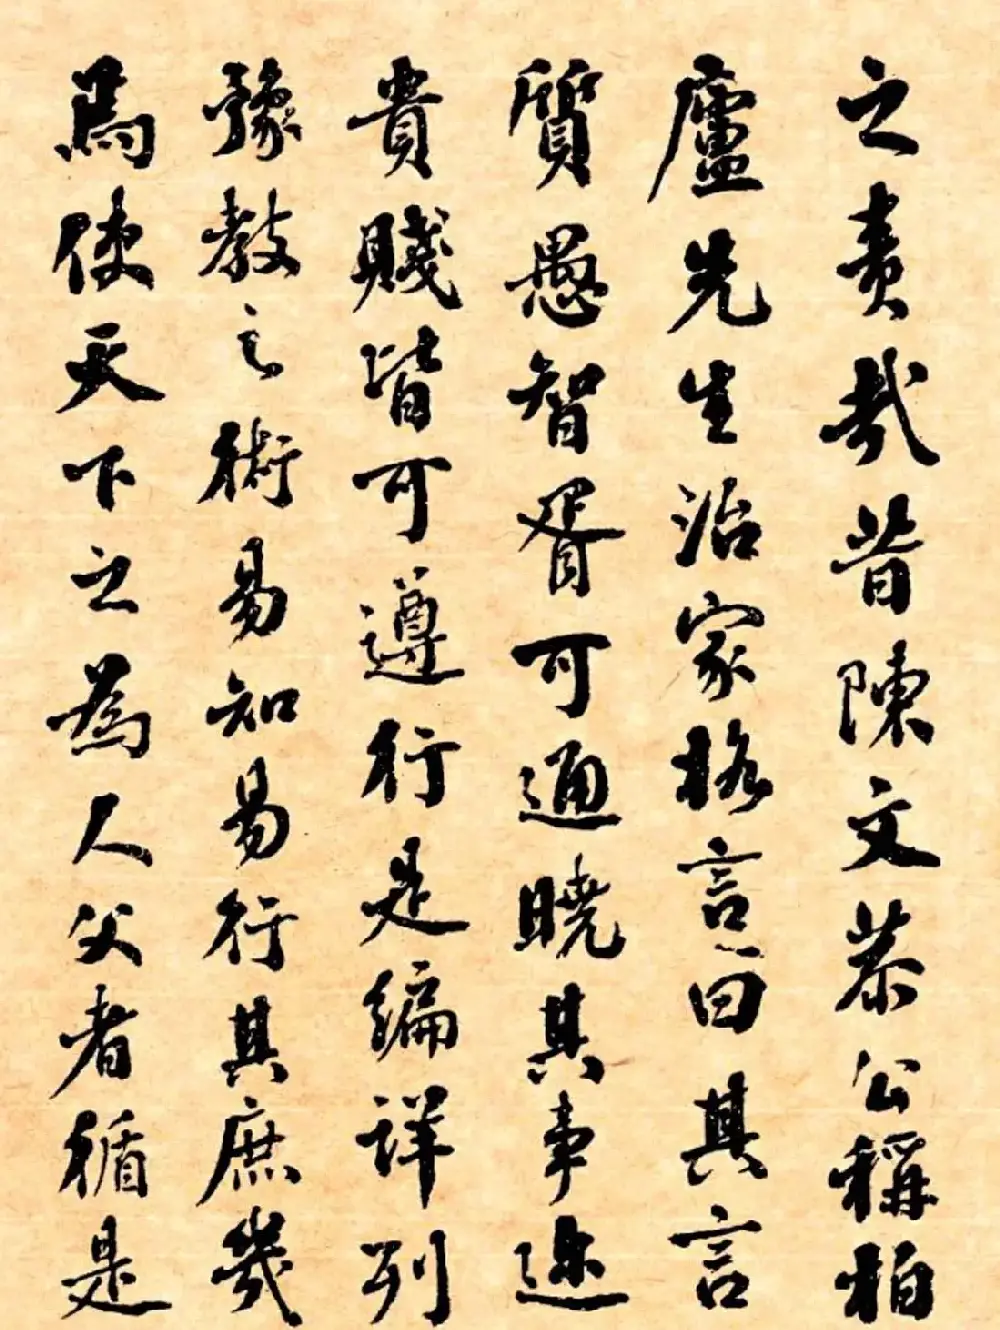 之責哉昔陳文恭公稱柏
廬先生治家格言曰其言
質愚智胥可通曉其事邇
貴賤皆可遵行是編詳列
豫教之術易知易行其庶幾
焉使天下之為人父者循是